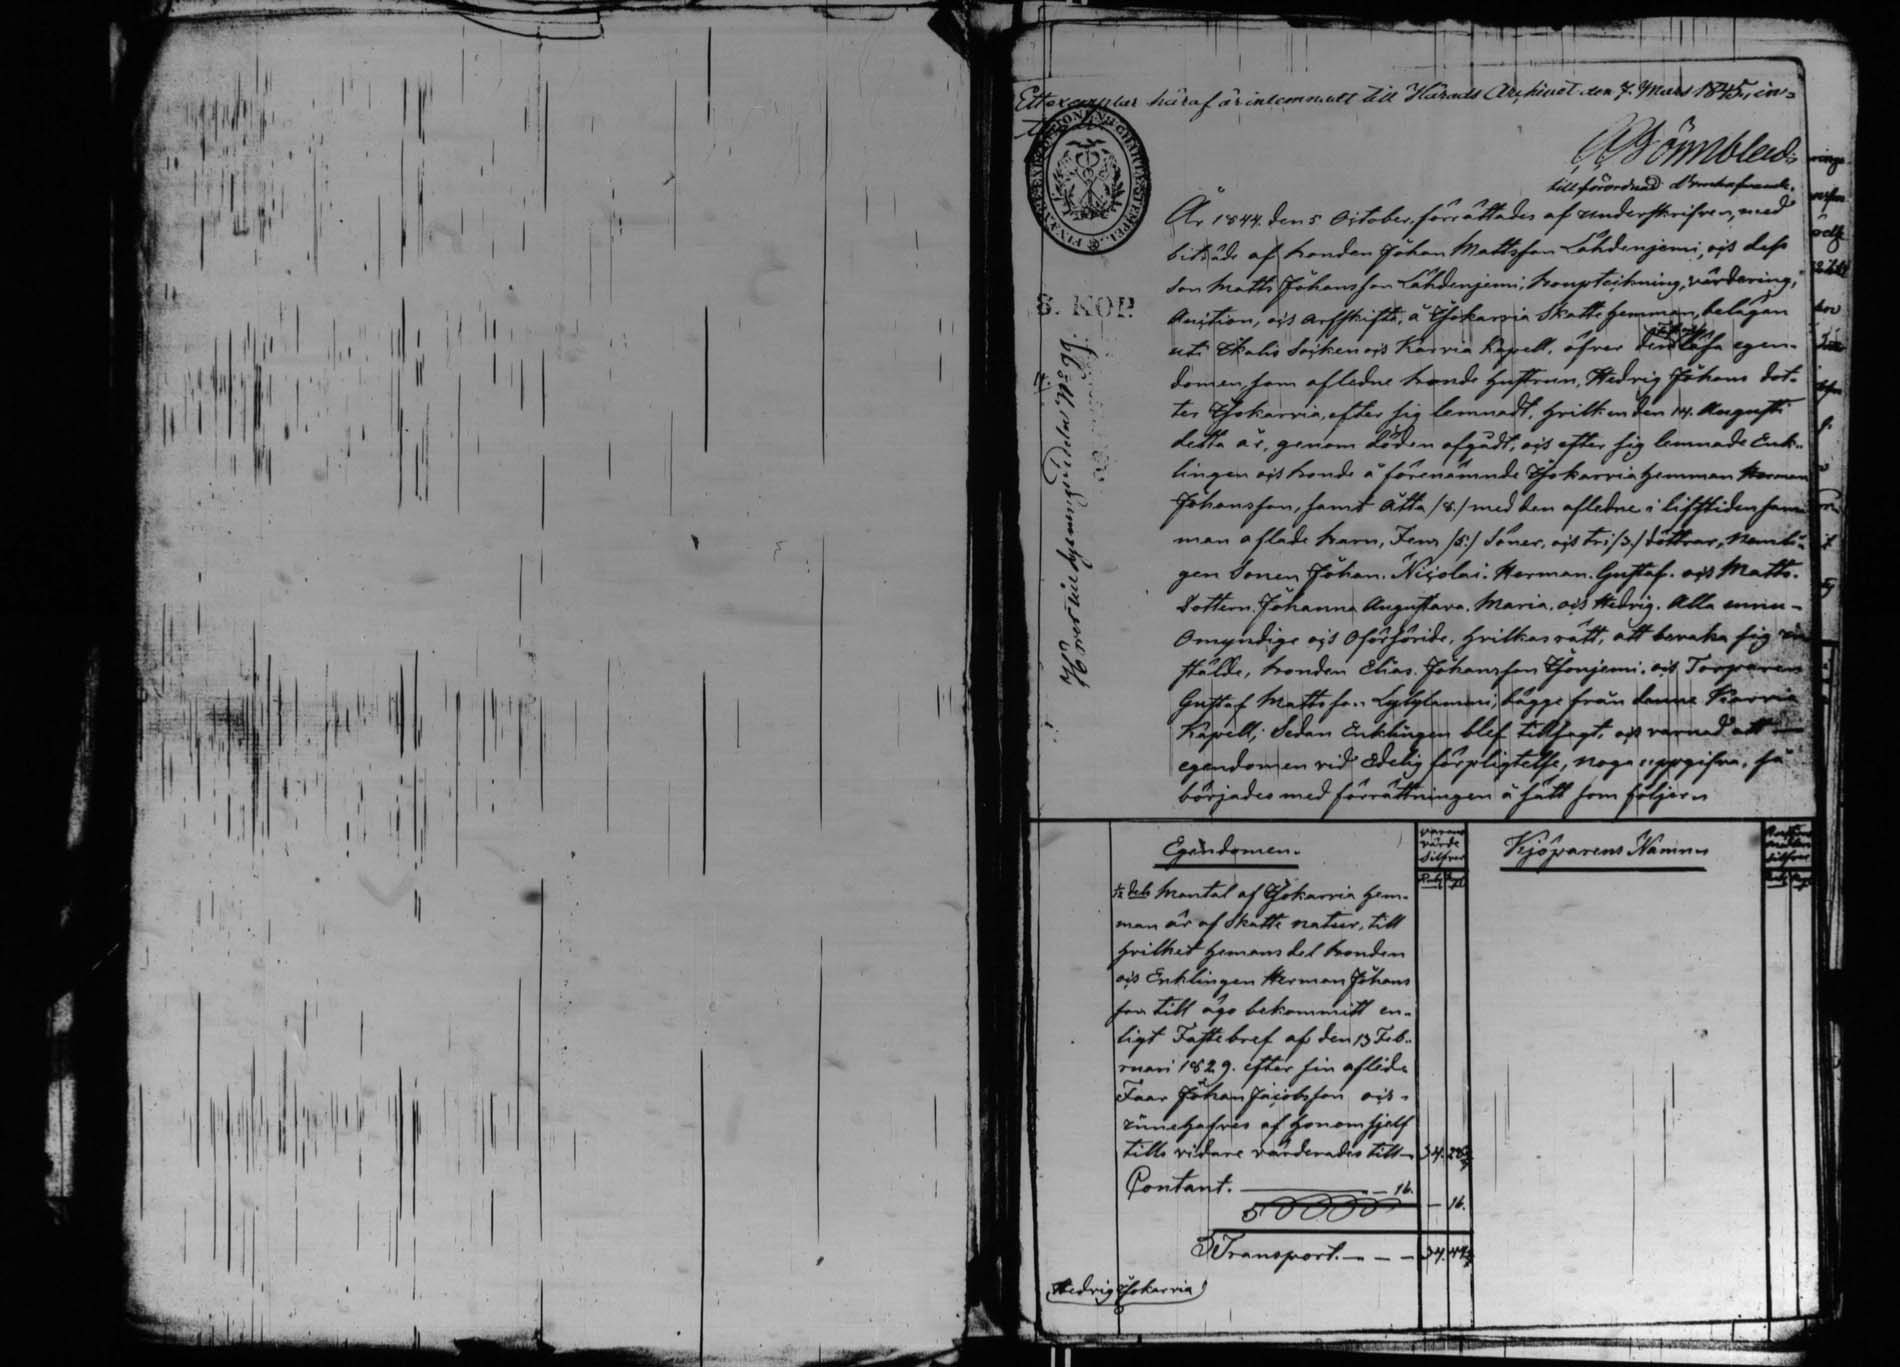 Ett exemplar häraf är inlemnadt till Härads Archivet den 7. Mars 1845, in-
tillförordnad
FINANCE EXPEDITIONEN CHARTÆ STEMPEL
År 1844. den 5 October, förrättades af underskrifven, med
biträde af bonden Johan Mattsson Lähdenjemi, och dess
Son Matts Johansson Lähdenjemi, bouptekning, värdering,
Auction, och Arfskifte, å Ylokarvia Skatte hemman, belägen
uti Ikalis Socken och Karvia Kapell, öfver den lösa egen-
domen, som afledne bonde hustrun, Hedrig Johans dot-
ter Yokarvia, efter sig lemnadt, hvilken den 14. Augusti
detta år, genom döden afgådt, och efter sig lemnade Enk-
lingen och bonde å förenämnde Yokarvia hemman Herman
Johansson, samt Åtta /8./ med den afledne i lifstiden sam-
man aflade barn, Fem /5:/ Söner, och tri /3./ döttrar, nemli-
gen Sonen Johan. Nicolai. Herman. Gustaf. och Matts.
Dottern. Johanna Augustava. Maria. och Hedrig. Alla ennu-
Omyndige och Oförsöride, hvilkas rätt, att bevaka sig
stälde, bonden Elias Johansson och Torparen
Gustaf Mattsson Lylylammi, bägge från denne Karvia
Kapell; Sedan Enklingen blef tillsagt, och varnad att
egendomen vid Edelig förpligtelse, noga uppgifva, så
börjades med förrättningen å sätt som följer
8. KOP.
Egendomen.
Varans värde Silfver
Kjöparens Namn
Rub Kop
dels Mantal af Yokarvia hem-
man är af Skatte natur, till
hvilket hemans del bonden
och Enklingen Herman Johans
son till ägo bekommitt en-
ligt Fastebref af den 13 Feb-
ruari 1829. efter sin aflidne
Faar Johan Jacobsson och
innehafves af honom sjelf
tills vidare värderades till 34.
Contant. — 16. — 16.
Transport. — — — 34.
Hedrig Yokarvia